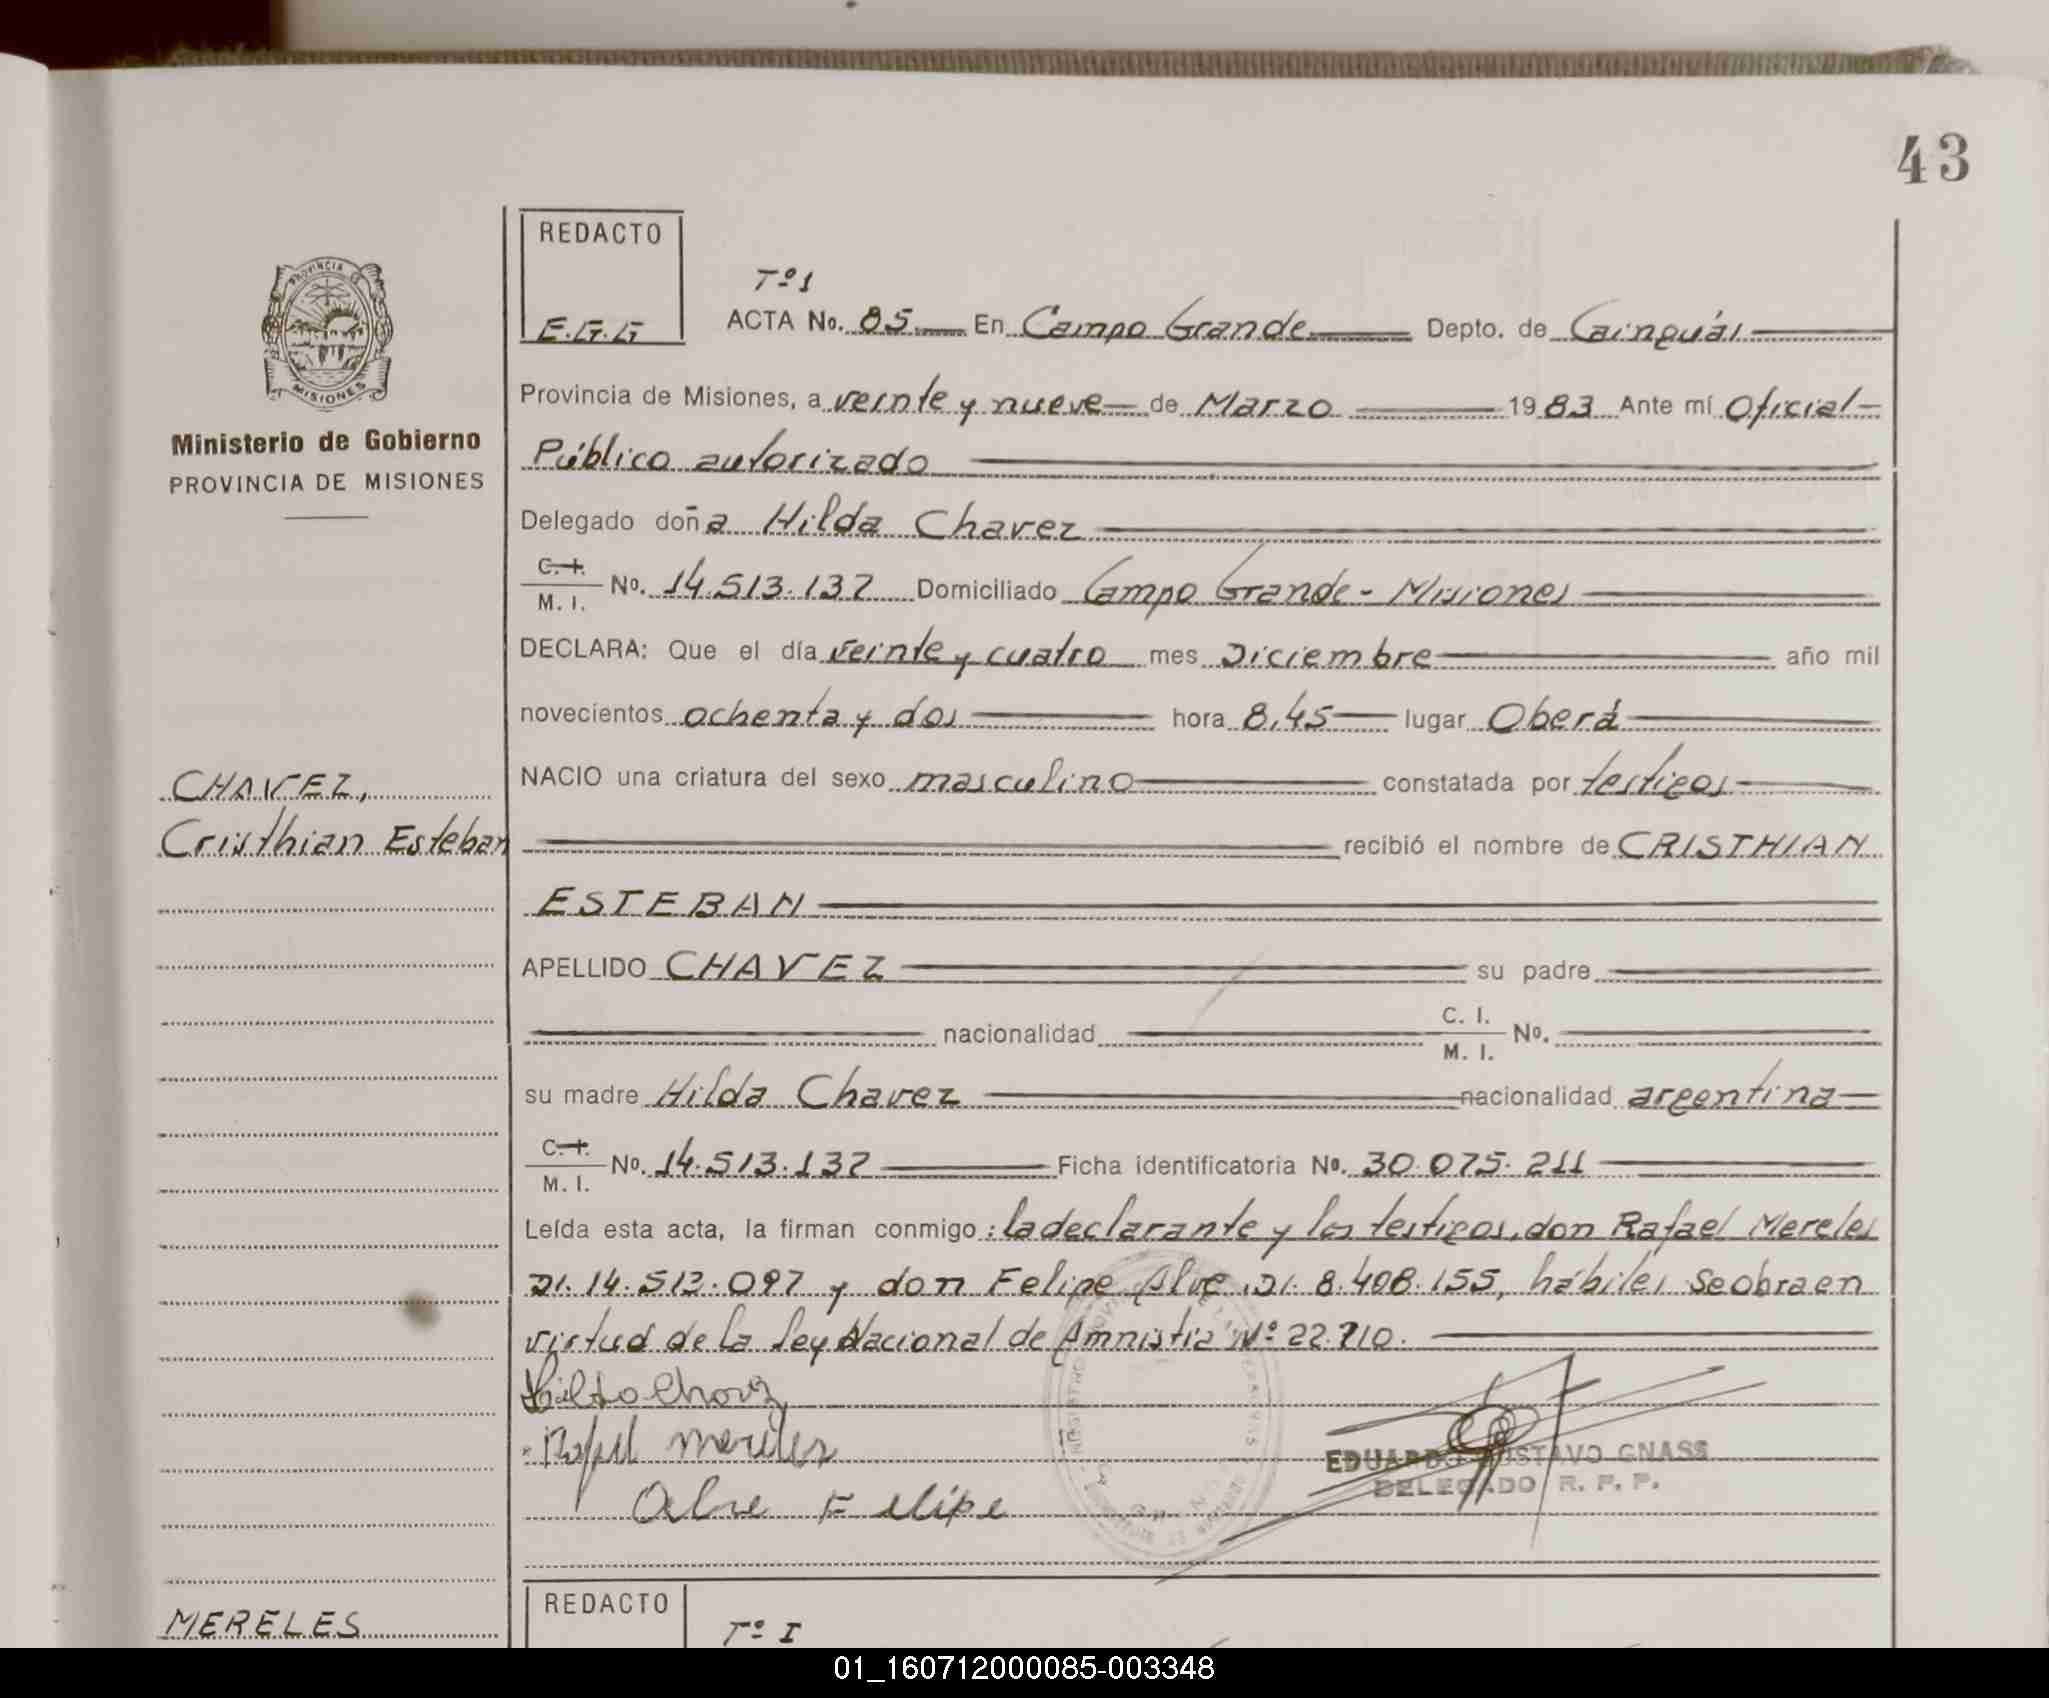 43
REDACTO
E.G.G
Tº 1
ACTA No. 85 En Campo Grande Depto. de Cainguás
Provincia de Misiones, a veinte y nueve de Marzo 1983 Ante mí Oficial
Público autorizado
PROVINCIA DE
MISIONES
Ministerio de Gobierno
PROVINCIA DE MISIONES
Delegado doña Hilda Chavez
C.I.
M. I. No. 14.513.137 Domiciliado Campo Grande - Misiones
DECLARA: Que el día veinte y cuatro mes Diciembre año mil
novecientos ochenta y dos hora 8,45 lugar Oberá
NACIO una criatura del sexo masculino constatada por testigos
CHAVEZ,
Cristhian Esteban
recibió el nombre de CRISTHIAN
ESTEBAN
APELLIDO CHAVEZ su padre
nacionalidad C. I. M. I. No.
su madre Hilda Chavez nacionalidad argentina
C.I.
M. I. No. 14.513.137 Ficha identificatoria No. 30.075.211
Leída esta acta, la firman conmigo: la declarante y los testigos, don Rafael Mereles
DI. 14.513.097 y don Felipe Alve, DI. 8.408.155, hábiles se obra en
virtud de la ley Nacional de Amnistia Nº 22.710.
Hilda Chavez
Rafael Mereles
Alve Felipe
EDUARDO GUSTAVO GNASS
DELEGADO R. P. P.
REDACTO
Tº I
MERELES
01_160712000085-003348